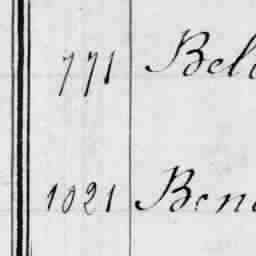 771 Bel
1021 Ben